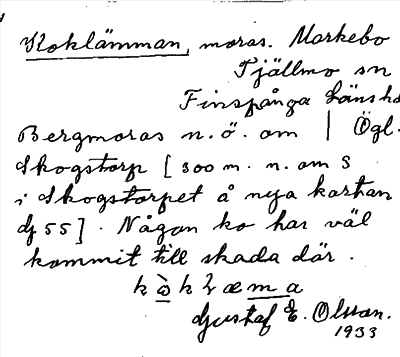 Koklämman, moras. Markebo
Tjällmo sn
Finspånga länshd
Bergmoras n.ö. om | Ögl.
Skogstorp [300 m. n. om S
i Skogstorpet å nya kartan
dj 55]. Någon ko har väl
kommit till skada där.
Gustaf E. Olsson.
1933